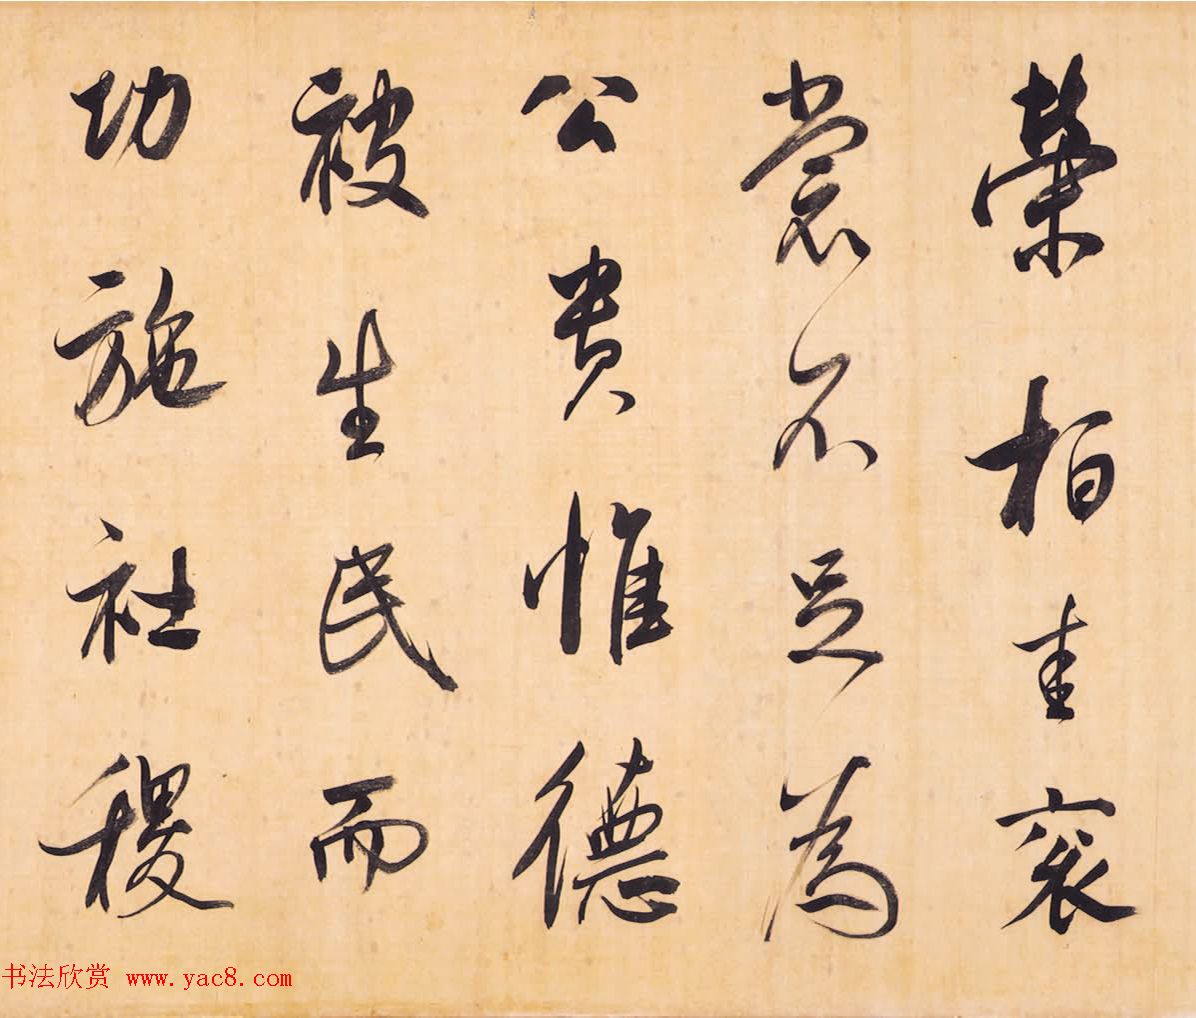 榮桓圭衮
裳不足為
公貴惟德
被生民而
功施社稷
书法欣赏 www.yac8.com